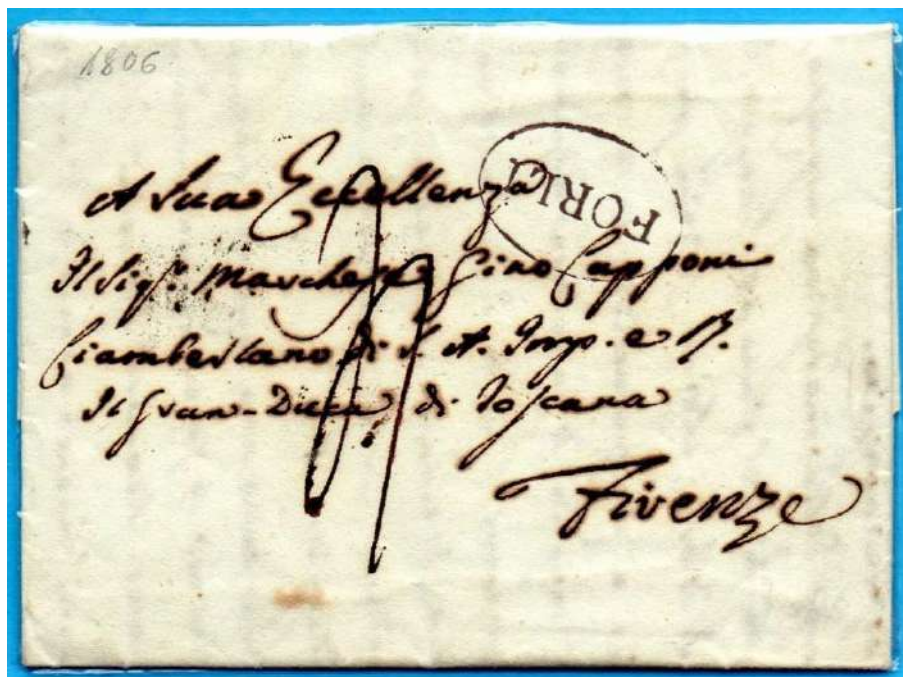 1806
A Sua Eccellenza
FORLI
Il Sigr. Marchese Gino Capponi
Ciamberlano di S. A. Imp. e R.
Il Gran-Duca di Toscana
Firenze